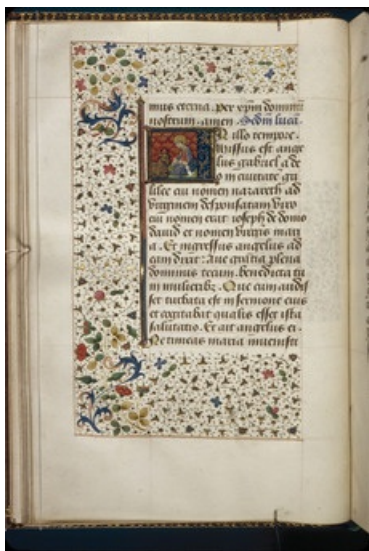 mus eterna. Per xpm dominu
nostrum. amen. Sedm lucā.
N illo tempore.
Missus est ange
lus gabriel a de
o in ciuitate ga
lilee cui nomen nazareth ad
virginem desponsatam viro
cui nomen erat ioseph de domo
dauid et nomen virginis mari
a. Et ingressus angelus ad
eam dixit: Aue gratia plena
dominus tecum. benedicta tu
in mulieribz. Que cum audis
set turbata est in sermone eius
et cogitabat qualis esset ista
salutatio. Et ait angelus ei.
Ne timeas maria inuenisti